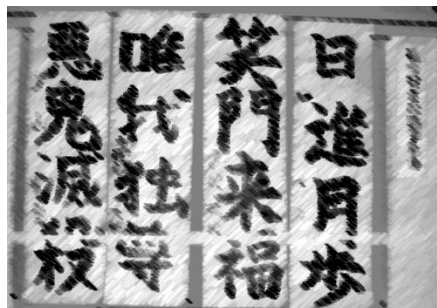 日進月歩
笑門来福
唯我独尊
悪鬼滅殺